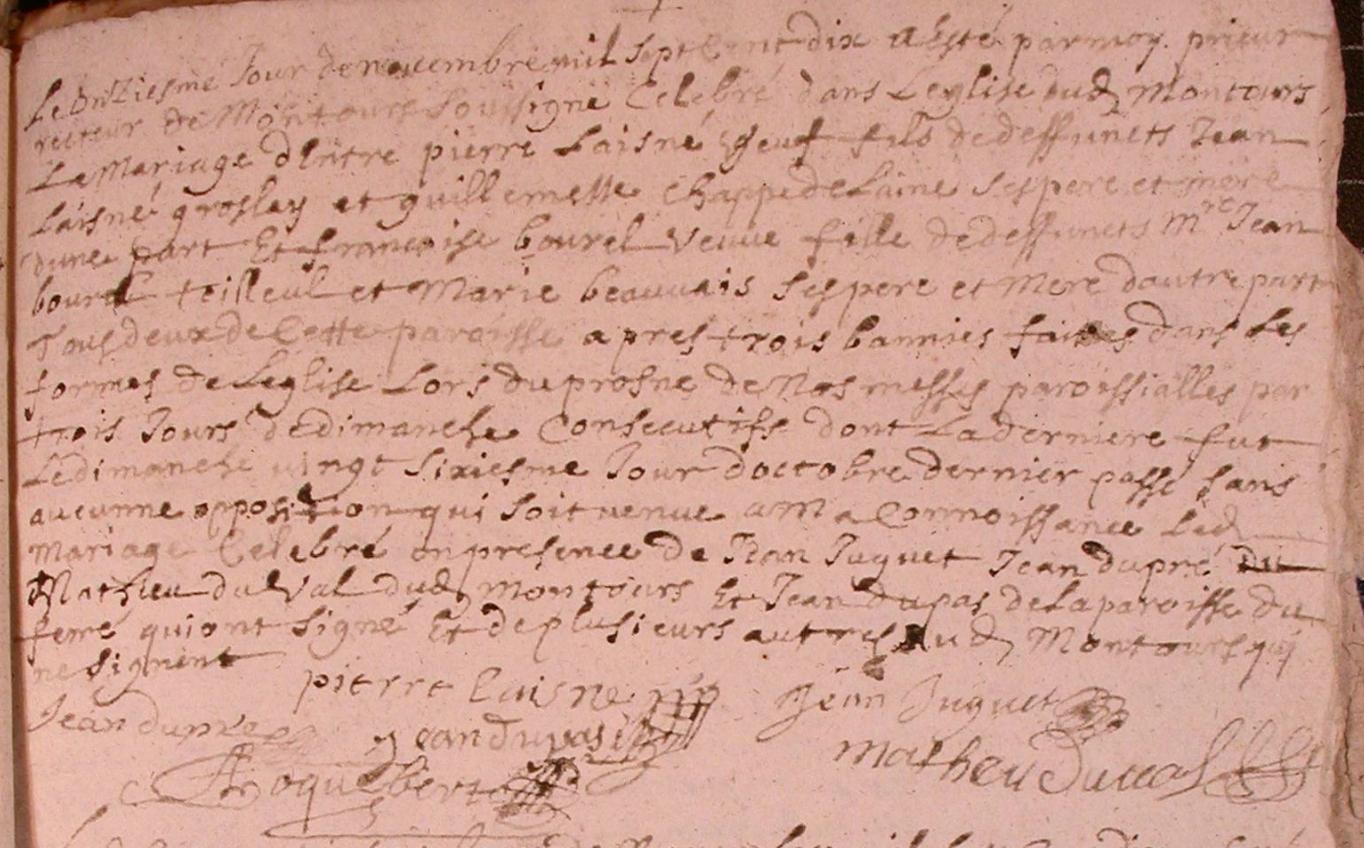 Le onziesme Jour de novembre mil sept Cent dix a esté par moy prieur
recteur de Montours Soussigné Celebré dans Leglise dud Montours
Le Mariage dEntre pierre Laisné veuf fils de deffuncts Jean
Laisné grosley et guillemette Chappedelaine Ses pere et mere
dune part Et francoise bourel veuve fille de deffuncts Mre Jean
bourel teilleul et Marie beauvais Ses pere et Mere dautre part
Tous deux de Cette paroisse apres trois bannies faites dans Les
formes de Leglise Lors du prosne de Nos messes paroissialles par
trois Jours de dimanche Consecutifs dont La derniere fut
Le dimanche vingt Sixiesme Jour doctobre dernier passé Sans
aucunne opposition qui Soit venue a ma Connoissance Led
Mariage Celebré en presence de Jean Juguet Jean dupré
Mathieu duVal dud Montours Et Jean dupas de La paroisse du
ferré qui ont Signé Et de plusieurs autres dud Montours qui
ne Signent
pierre laisne Jean Juguet
Jean dupre Jean dupas matheu Duval
Roquebert